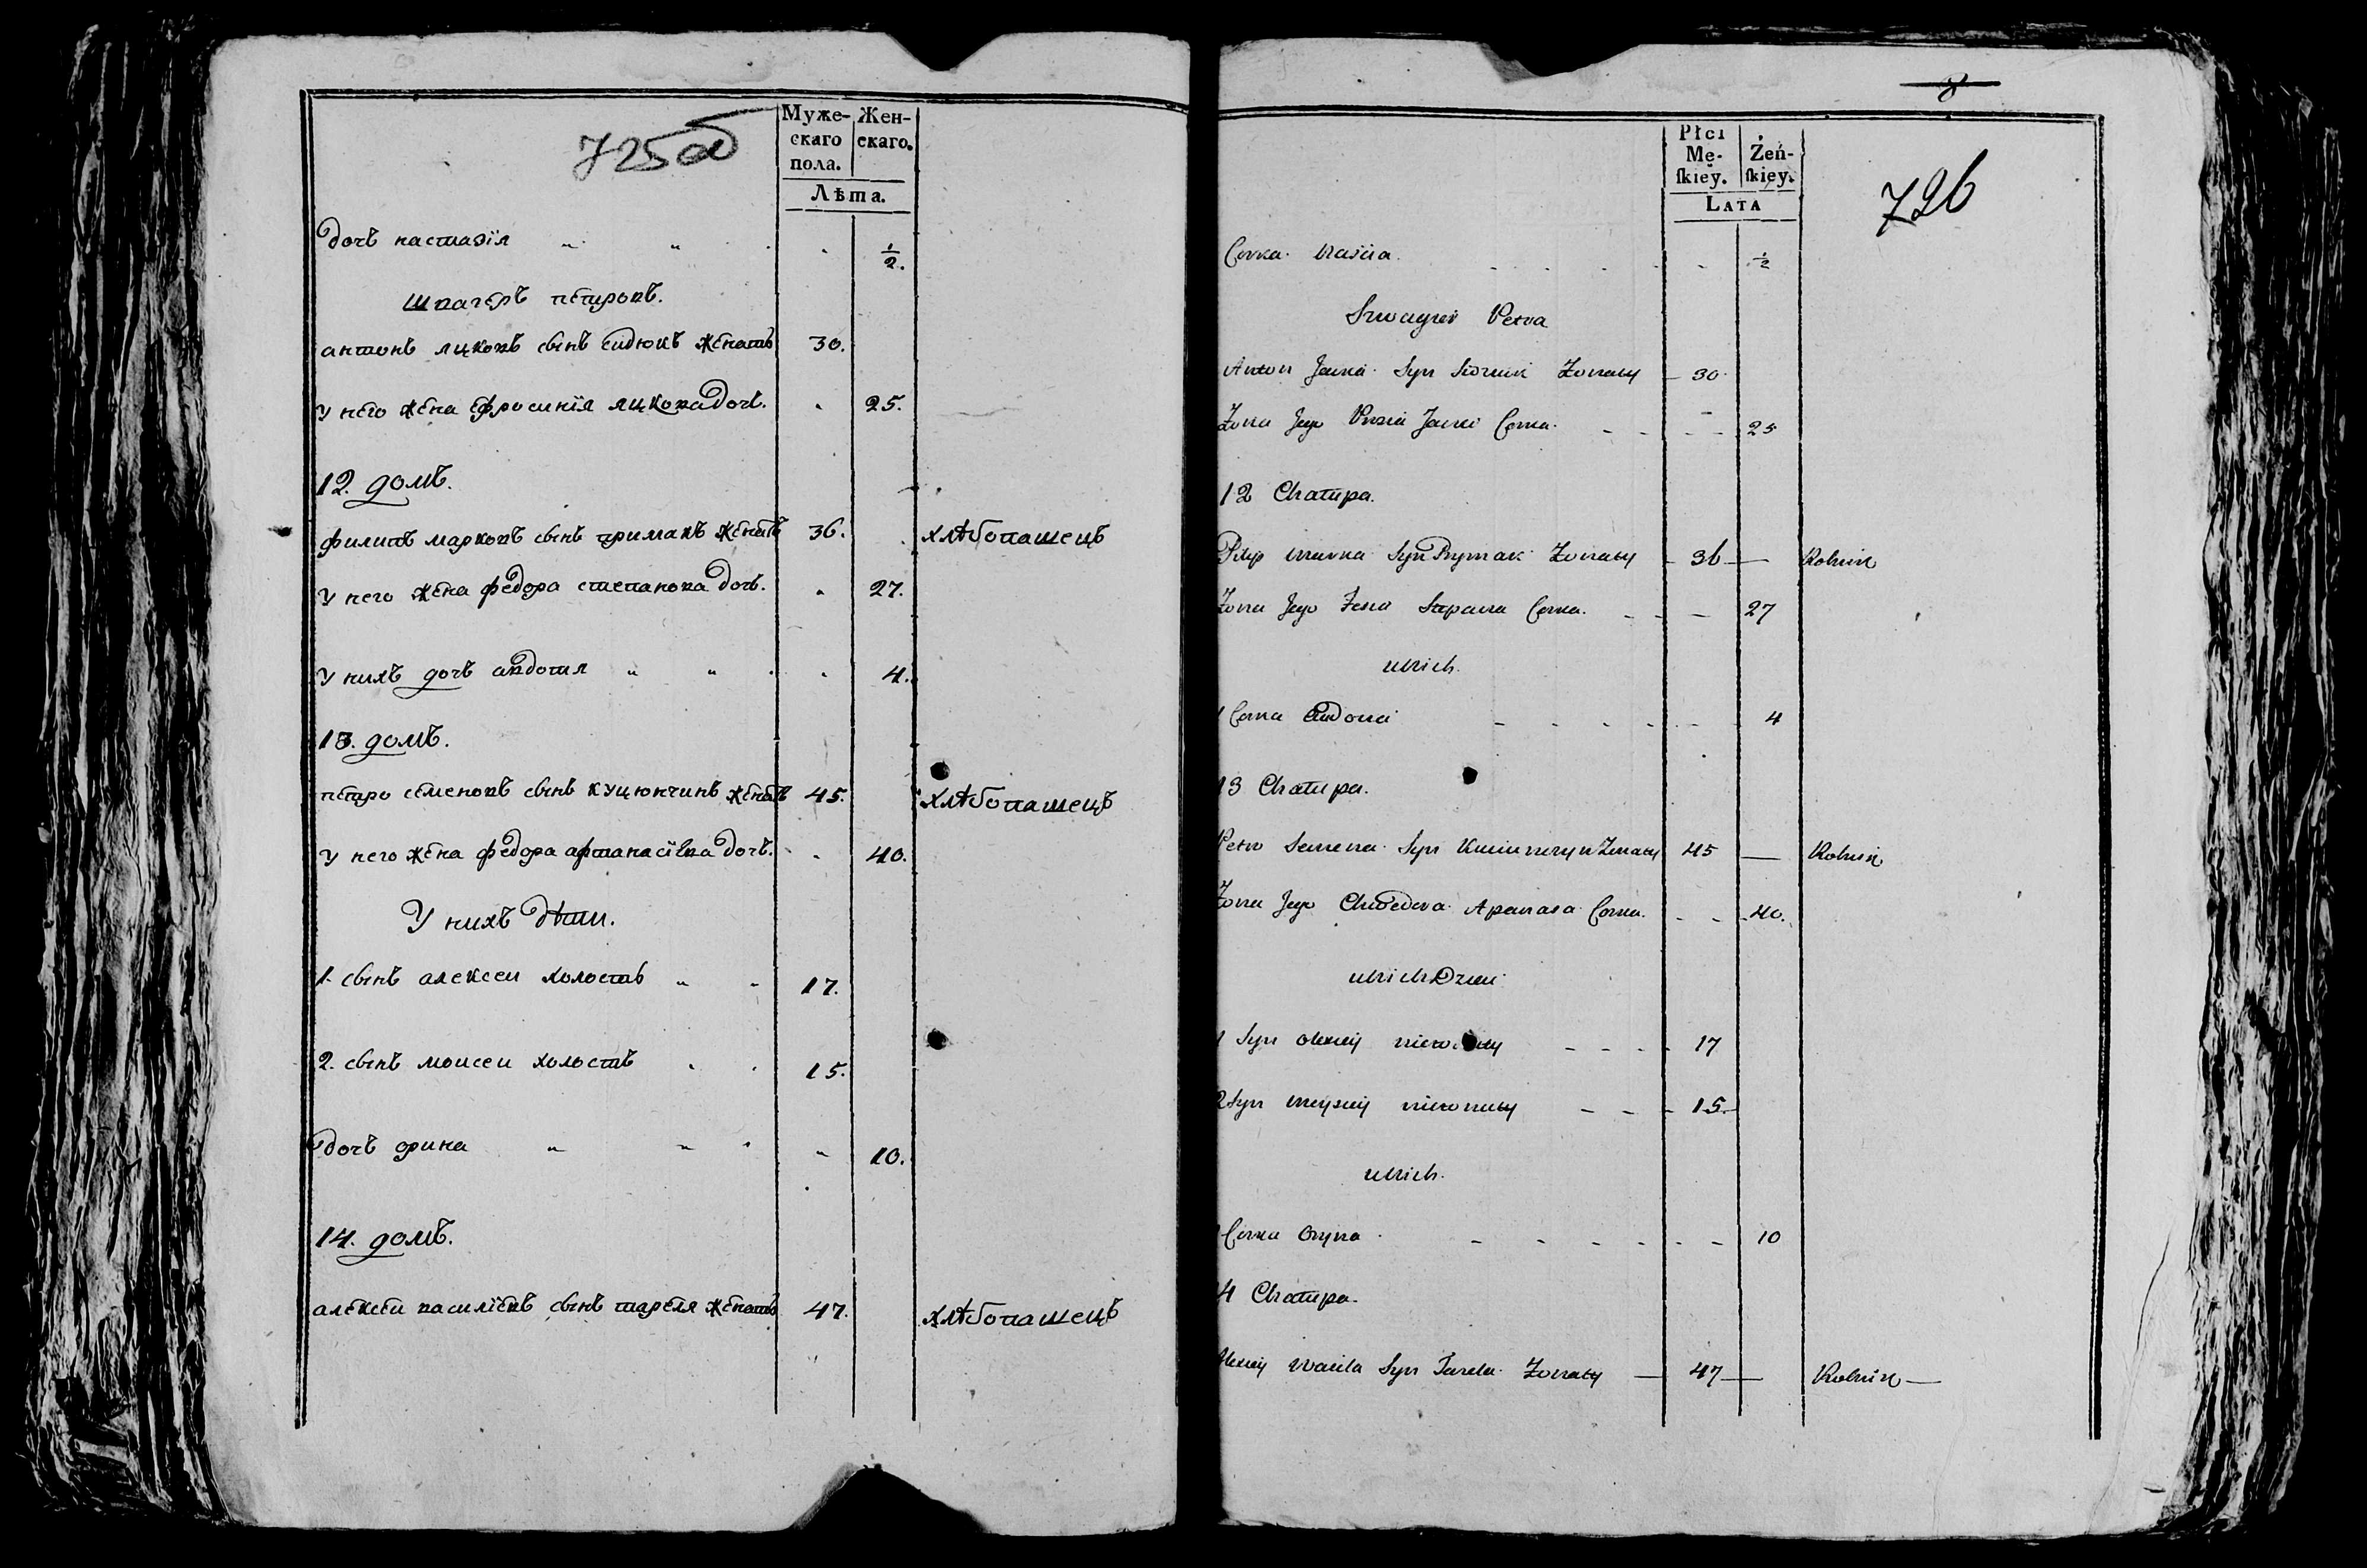 725об
Муже- Жен-
скаго скаго.
пола.
Лѣта.
дочъ настазїя " " . . ½.
швагеръ петровъ.
антонъ яцковъ сынъ сидюкъ женатъ 30.
у него жена ефросинїя яцкова дочъ. . 25.
12. домъ.
филипъ марковъ сынъ примакъ женатъ 36. . хлѣбопашецъ
у него жена федора степанова дочъ. . 27.
у нихъ дочъ авдотия " " . . 4.
13. домъ.
петро семеновъ сынъ куцюнчинъ женатъ 45. хлѣбопашецъ
у него жена федора афтанасїева дочъ. . 40.
У нихъ дѣти.
1. сынъ алексеи холостъ " " 17.
2. сынъ моисеи холостъ . . 15.
дочъ орина " " " " 10.
14. домъ.
алексеи василїевъ сынъ тареля женатъ 47. хлѣбопашецъ
8
726
Płci
Mę- Żeń-
ſkiey. ſkiey.
LATA
Corka Nascia ½
Szwagier Petra
Anton Jacka Syn Zonaty 30
Zona Jego Jacka Corka 25
12 Chatupa.
Pilip Marka Syn Prymak Zonaty 36 Rolnik
Zona Jego Stepana Corka 27
u Nich.
1 Corka Audocia 4
13 Chatupa.
Petro Semena Syn Kuciunczyn Zonaty 45 Rolnik
Zona Jego Chwedora Apanasa Corka 40.
u Nich Dzieci
1 Syn Olexiey niezonaty 17
2 Syn Moysiey niezonaty 15
u Nich.
1 Corka Oryna 10
4 Chatupa.
Alexiey Wasila Syn Tarela Zonaty 47 Rolnik